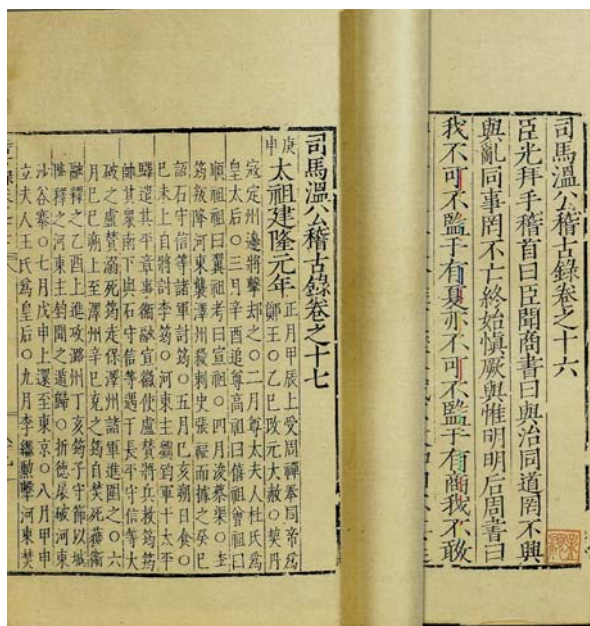 司馬溫公稽古錄卷之十六
臣光拜手稽首曰臣聞商書曰與治同道罔不興
與亂同事罔不亡終始慎厥與惟明明后周書曰
我不可不監于有夏亦不可不監于有商我不敢
司馬溫公稽古錄卷之十七
庚申
太祖建隆元年
正月甲辰上受周禪奉周帝爲
鄭王〇乙巳改元大赦〇契丹
寇定州邊將擊却之〇二月尊太夫人杜氏爲
皇太后〇三月辛酉追尊高祖曰僖祖曾祖曰
順祖祖曰翼祖考曰宣祖〇四月浚蔡渠〇李
筠叛降河東襲澤州殺刺史張福而據之癸巳
詔石守信等諸軍討筠〇五月己亥朔日食〇
己未上自將討李筠〇河東主與筠軍于太平
驛遣其平章事衛融宣徽使盧贊將兵救筠筠
帥其衆南下與石守信等遇于長平守信等大
破之盧贊溺死筠走保澤州諸軍進圍之〇六
月己巳朔上至澤州辛巳克之筠自焚死獲衛
融釋之乙酉上進攻潞州丁亥筠子守節以城
降釋之河東主鈞聞之遁歸〇折德扆破河東
沙谷寨〇七月戊申上還至東京〇八月甲申
立夫人王氏爲皇后〇九月李繼勳擊河東焚